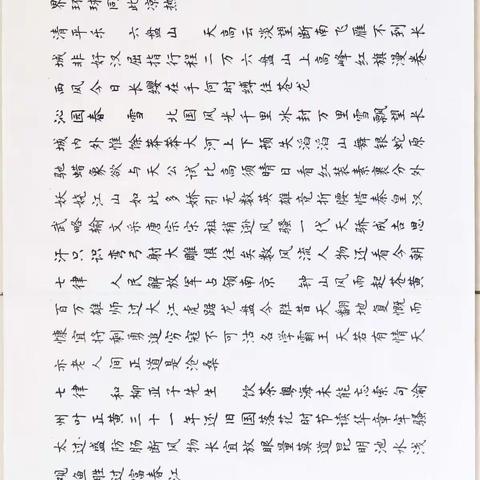 界环球同此凉热
清平乐 六盘山 天高云淡望断南飞雁不到长
城非好汉屈指行程二万六盘山上高峰红旗漫卷
西风今日长缨在手何时缚住苍龙
沁园春 雪 北国风光千里冰封万里雪飘望长
城内外惟馀莽莽大河上下顿失滔滔山舞银蛇原
驰蜡象欲与天公试比高须晴日看红装素裹分外
妖娆江山如此多娇引无数英雄竞折腰惜秦皇汉
武略输文采唐宗宋祖稍逊风骚一代天骄成吉思
汗只识弯弓射大雕俱往矣数风流人物还看今朝
七律 人民解放军占领南京 钟山风雨起苍黄
百万雄师过大江虎踞龙盘今胜昔天翻地复慨而
慷宜将剩勇追穷寇不可沽名学霸王天若有情天
亦老人间正道是沧桑
七律 和柳亚子先生 饮茶粤海未能忘索句渝
州叶正黄三十一年还旧国落花时节读华章牢骚
太过盛防肠断风物长宜放眼量莫道昆明池水浅
观鱼胜过富春江